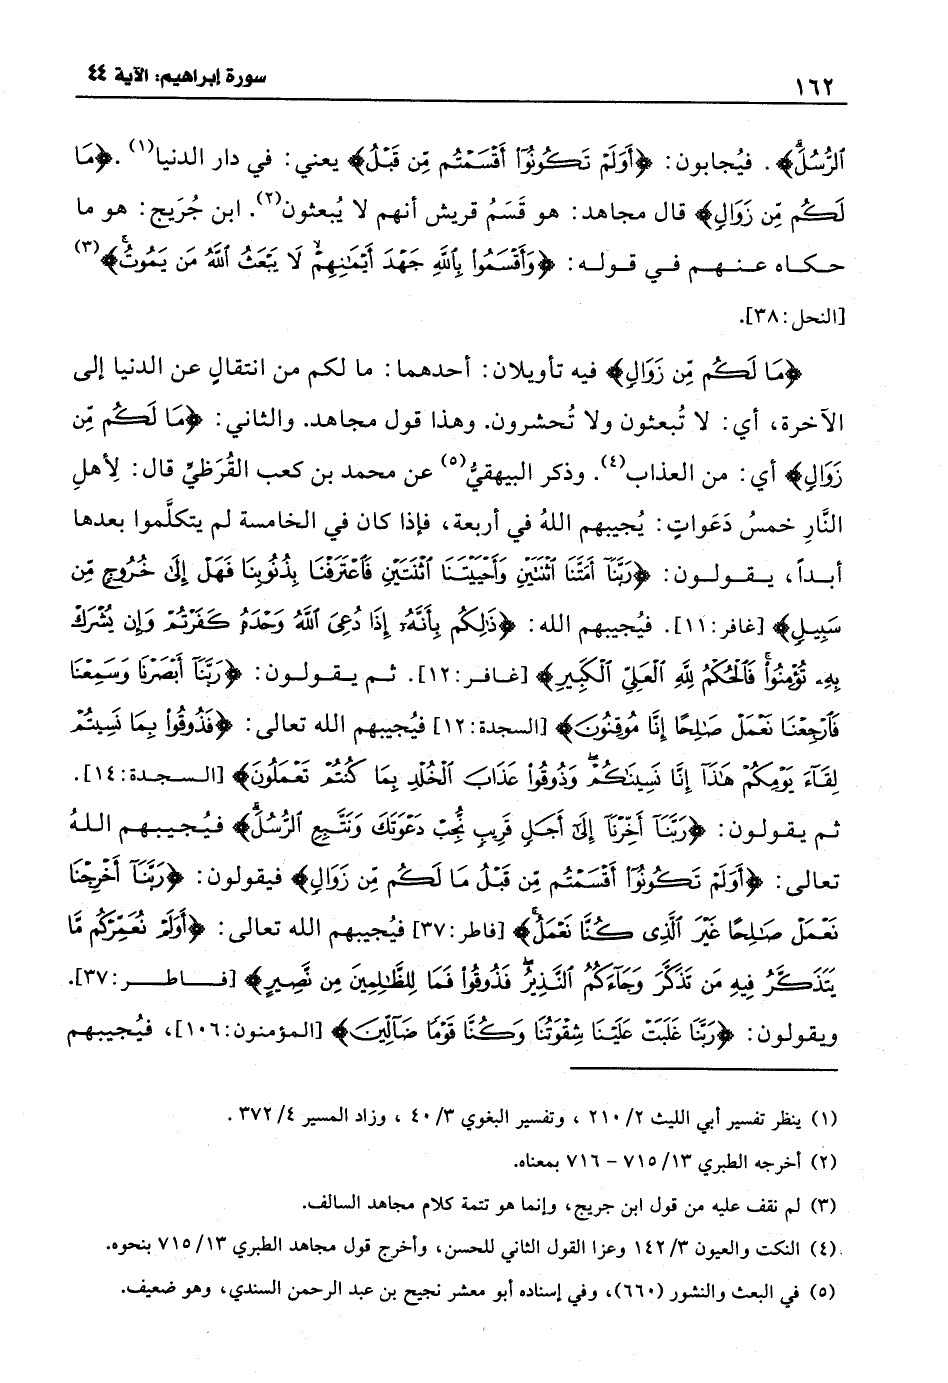 ١٦٢
سورة إبراهيم: الآية ٤٤
ٱلرُّسُلَ﴾. فيُجابون: ﴿أَوَلَمْ تَكُونُوٓا۟ أَقْسَمْتُم مِّن قَبْلُ﴾ يعني: في دار الدنيا(١). ﴿مَا
لَكُم مِّن زَوَالٍ﴾ قال مجاهد: هو قَسَمُ قريش أنهم لا يُبعثون(٢). ابن جُرَيج: هو ما
حكاه عنهم في قوله: ﴿وَأَقْسَمُوا۟ بِٱللَّهِ جَهْدَ أَيْمَٰنِهِمْ لَا يَبْعَثُ ٱللَّهُ مَن يَمُوتُ﴾(٣)
[النحل: ٣٨].
﴿مَا لَكُم مِّن زَوَالٍ﴾ فيه تأويلان: أحدهما: ما لكم من انتقالٍ عن الدنيا إلى
الآخرة، أي: لا تُبعثون ولا تُحشرون. وهذا قول مجاهد. والثاني: ﴿مَا لَكُم مِّن
زَوَالٍ﴾ أي: من العذاب(٤). وذكر البيهقيُّ(٥) عن محمد بن كعب القُرَظيِّ قال: لِأهلِ
النَّارِ خمسُ دَعَواتٍ: يُجيبهم اللهُ في أربعة، فإذا كان في الخامسة لم يتكلَّموا بعدها
أبداً، يقولون: ﴿رَبَّنَآ أَمَتَّنَا ٱثْنَتَيْنِ وَأَحْيَيْتَنَا ٱثْنَتَيْنِ فَٱعْتَرَفْنَا بِذُنُوبِنَا فَهَلْ إِلَىٰ خُرُوجٍ مِّن
سَبِيلٍ﴾ [غافر: ١١]. فيُجيبهم الله: ﴿ذَٰلِكُم بِأَنَّهُۥٓ إِذَا دُعِىَ ٱللَّهُ وَحْدَهُۥ كَفَرْتُمْ وَإِن يُشْرَكْ
بِهِۦ تُؤْمِنُوا۟ فَٱلْحُكْمُ لِلَّهِ ٱلْعَلِىِّ ٱلْكَبِيرِ﴾ [غافر: ١٢]. ثم يقولون: ﴿رَبَّنَآ أَبْصَرْنَا وَسَمِعْنَا
فَٱرْجِعْنَا نَعْمَلْ صَٰلِحًا إِنَّا مُوقِنُونَ﴾ [السجدة: ١٢] فيُجيبهم الله تعالى: ﴿فَذُوقُوا۟ بِمَا نَسِيتُمْ
لِقَآءَ يَوْمِكُمْ هَٰذَآ إِنَّا نَسِينَٰكُمْ وَذُوقُوا۟ عَذَابَ ٱلْخُلْدِ بِمَا كُنتُمْ تَعْمَلُونَ﴾ [السجدة: ١٤].
ثم يقولون: ﴿رَبَّنَآ أَخِّرْنَآ إِلَىٰٓ أَجَلٍ قَرِيبٍ نُّجِبْ دَعْوَتَكَ وَنَتَّبِعِ ٱلرُّسُلَ﴾ فيُجيبهم اللهُ
تعالى: ﴿أَوَلَمْ تَكُونُوٓا۟ أَقْسَمْتُم مِّن قَبْلُ مَا لَكُم مِّن زَوَالٍ﴾ فيقولون: ﴿رَبَّنَآ أَخْرِجْنَا
نَعْمَلْ صَٰلِحًا غَيْرَ ٱلَّذِى كُنَّا نَعْمَلُ﴾ [فاطر: ٣٧] فيُجيبهم الله تعالى: ﴿أَوَلَمْ نُعَمِّرْكُم مَّا
يَتَذَكَّرُ فِيهِ مَن تَذَكَّرَ وَجَآءَكُمُ ٱلنَّذِيرُ فَذُوقُوا۟ فَمَا لِلظَّٰلِمِينَ مِن نَّصِيرٍ﴾ [فاطر: ٣٧].
ويقولون: ﴿رَبَّنَا غَلَبَتْ عَلَيْنَا شِقْوَتُنَا وَكُنَّا قَوْمًا ضَآلِّينَ﴾ [المؤمنون: ١٠٦]، فيُجيبهم
(١) ينظر تفسير أبي الليث ٢/ ٢١٠ ، وتفسير البغوي ٣/ ٤٠ ، وزاد المسير ٤/ ٣٧٢ .
(٢) أخرجه الطبري ١٣/ ٧١٥ - ٧١٦ بمعناه.
(٣) لم نقف عليه من قول ابن جريج، وإنما هو تتمة كلام مجاهد السالف.
(٤) النكت والعيون ٣/ ١٤٢ وعزا القول الثاني للحسن، وأخرج قول مجاهد الطبري ١٣/ ٧١٥ بنحوه.
(٥) في البعث والنشور (٦٦٠)، وفي إسناده أبو معشر نجيح بن عبد الرحمن السندي، وهو ضعيف.